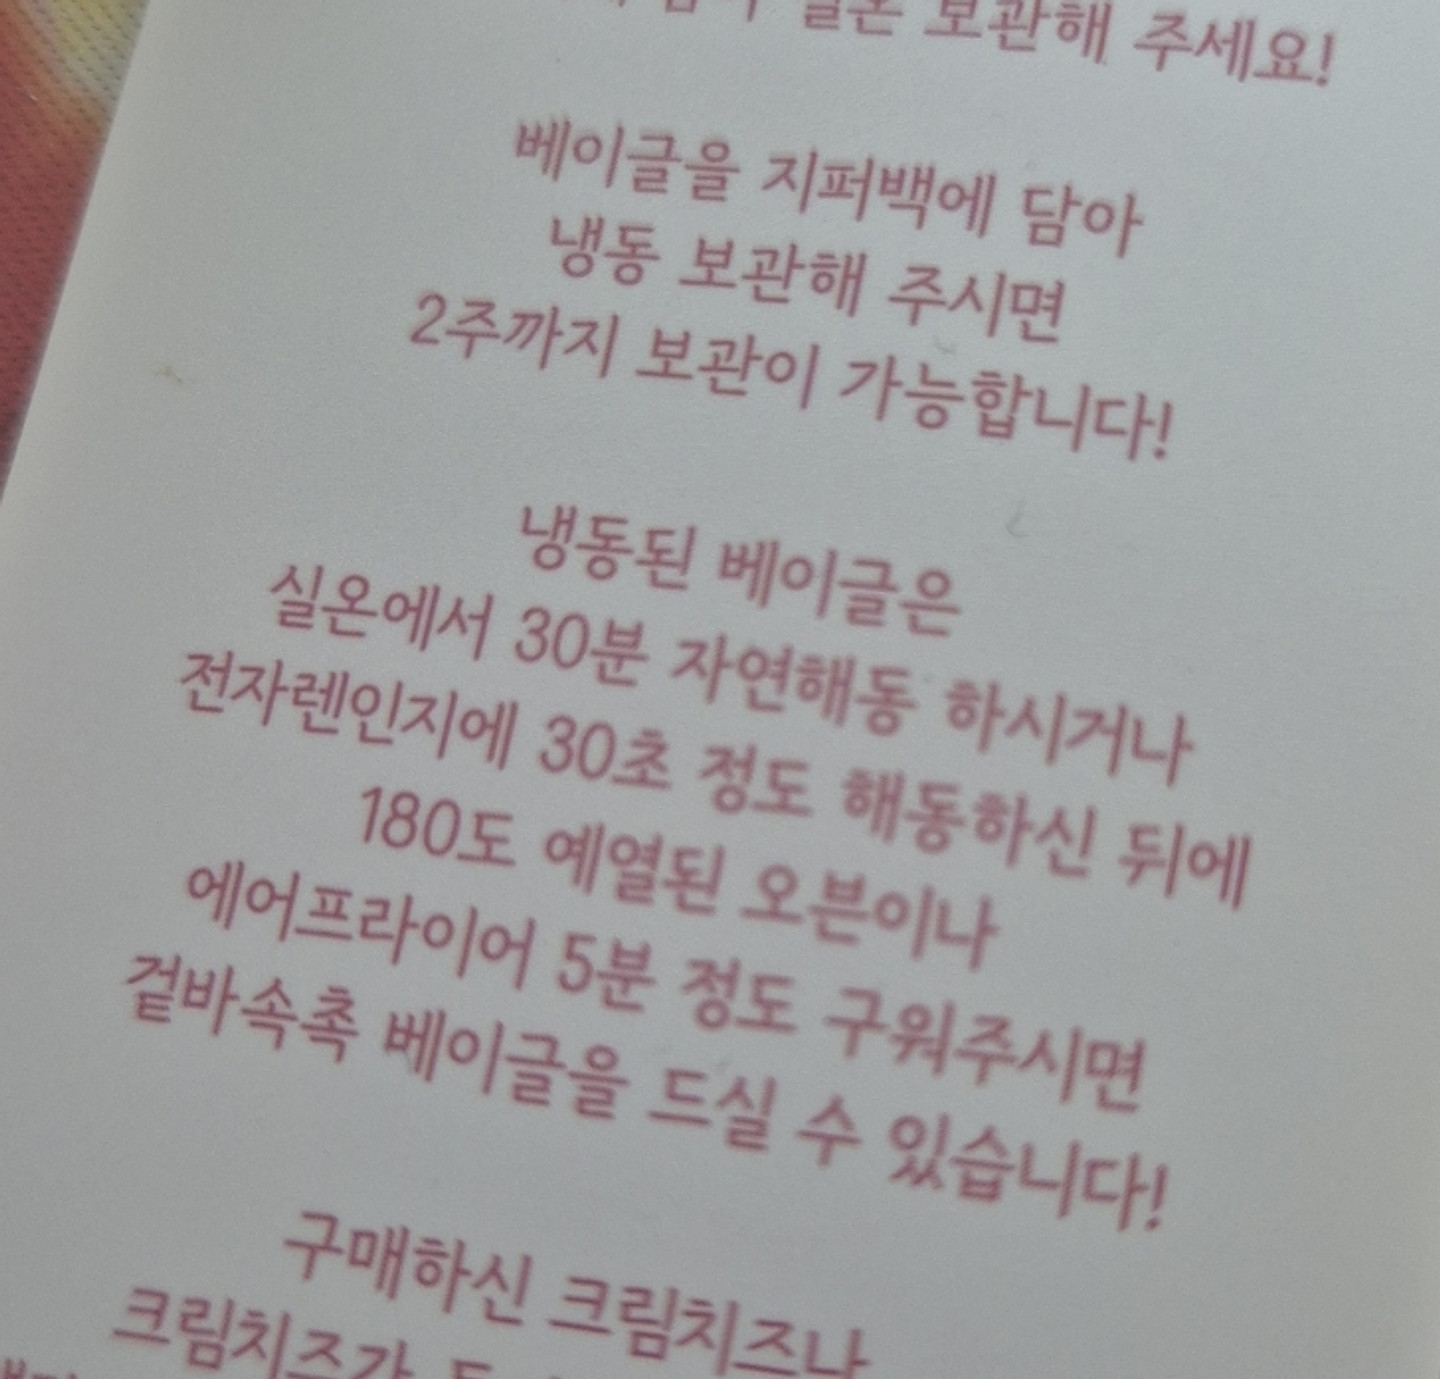 실온 보관해 주세요!
베이글을 지퍼백에 담아
냉동 보관해 주시면
2주까지 보관이 가능합니다!
냉동된 베이글은
실온에서 30분 자연해동 하시거나
전자렌인지에 30초 정도 해동하신 뒤에
180도 예열된 오븐이나
에어프라이어 5분 정도 구워주시면
겉바속촉 베이글을 드실 수 있습니다!
구매하신 크림치즈나
크림치즈가